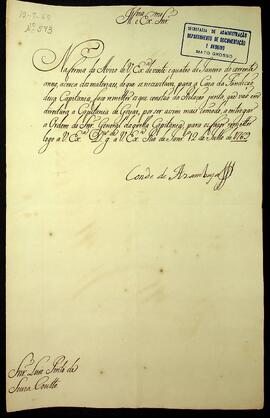 12-7-69
Nº 543
Illmo.
e Exmo. Snr.
SECRETARIA DE ADMINISTRAÇÃO
DEPARTAMENTO DE DOCUMENTAÇÃO
E ARQUIVO
MATO GROSSO
Na forma do Aviso de V. Exa. de vinte e quatro de Janeiro do corrente
anno, acerca dos materiaes, de que se necessitam para a Casa da Fundição
dessa Capitania, fara remetter os que constão da Relação junta, que vão em
direitura a Capitania de Goyas, por ser assim mais commodo, a entregar
a Ordem do Snr. General daquella Capitania, para os fazer remetter
logo a V. Exa. Ds. g. a V. Exa. Rio de Janro. 12 de Julho de 1769
Conde de Azambuja
Snr. Luis Pinto de
Souza Coutto